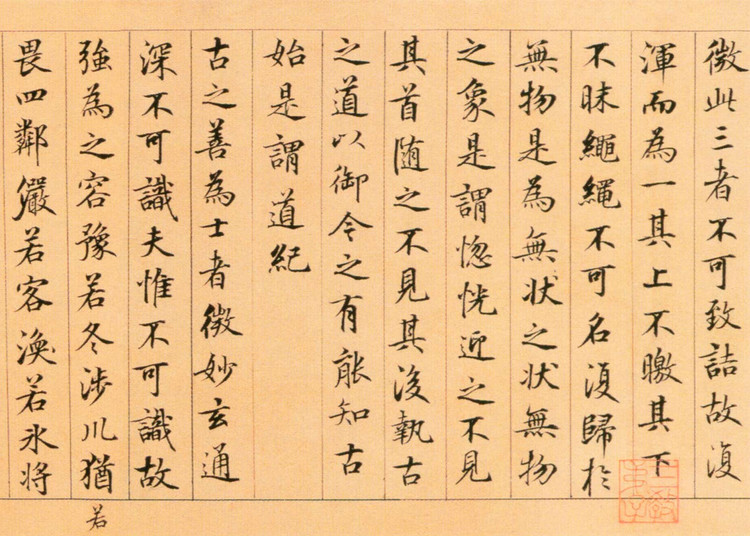 微此三者不可致詰故復
渾而為一其上不皦其下
不昧繩繩不可名復歸於
無物是為無状之状無物
之象是謂惚恍迎之不見
其首随之不見其後執古
之道以御今之有能知古
始是謂道紀
古之善為士者微妙玄通
深不可識夫惟不可識故
強為之容豫若冬涉川猶
若
畏四鄰嚴若客渙若氷将